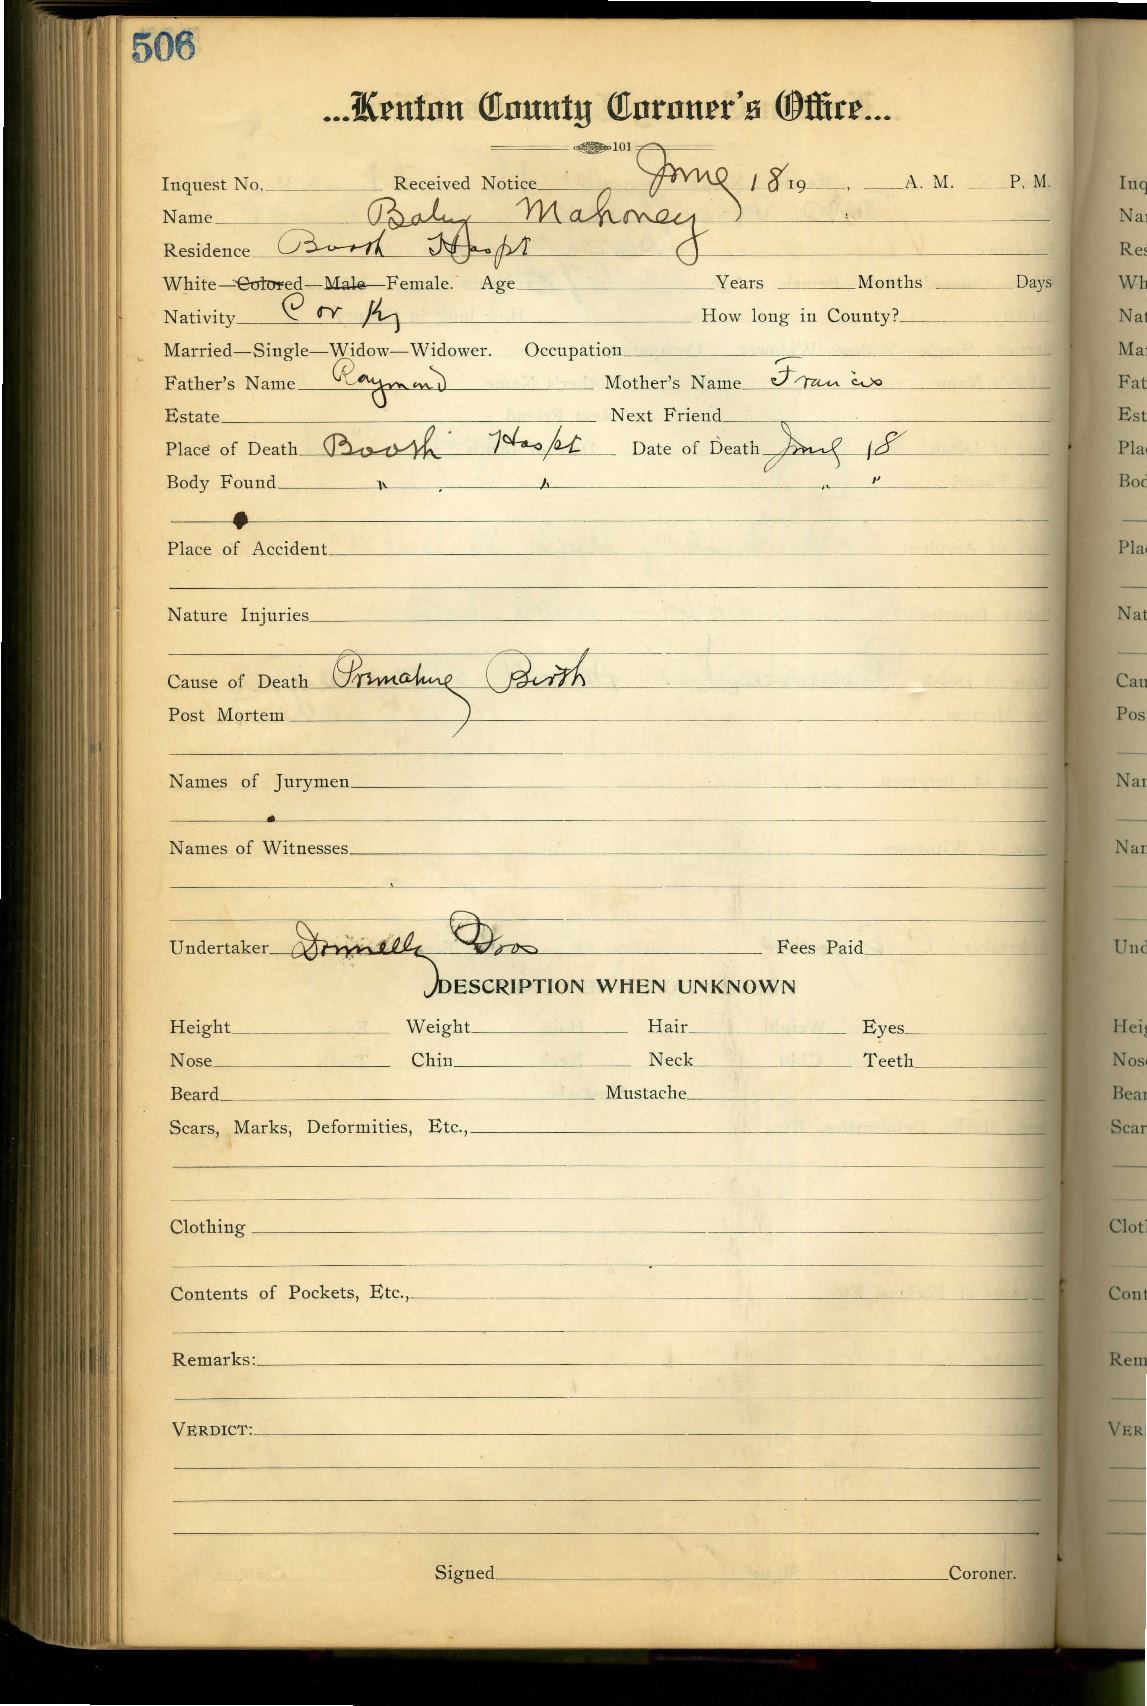 506
...Kenton County Coroner's Office...
101
Inquest No. Received Notice June 18 19 , A. M. P. M.
Name Baby Mahoney
Residence Booth Hospt
White—Colored—Male—Female. Age Years Months Days
Nativity Cov Ky How long in County?
Married—Single—Widow—Widower. Occupation
Father's Name Raymond Mother's Name Francis
Estate Next Friend
Place of Death Booth Hospt Date of Death June 18
Body Found " " " "
Place of Accident
Nature Injuries
Cause of Death Premature Birth
Post Mortem
Names of Jurymen
Names of Witnesses
Undertaker Donnelly Bros Fees Paid
DESCRIPTION WHEN UNKNOWN
Height Weight Hair Eyes
Nose Chin Neck Teeth
Beard Mustache
Scars, Marks, Deformities, Etc.,
Clothing
Contents of Pockets, Etc.,
Remarks:
VERDICT:
Signed Coroner.
Inq
Na
Res
Wh
Nat
Ma
Fat
Est
Pla
Bod
Pla
Nat
Cau
Pos
Na
Nar
Und
Hei
Nos
Bear
Scar
Clot
Cont
Rem
VER